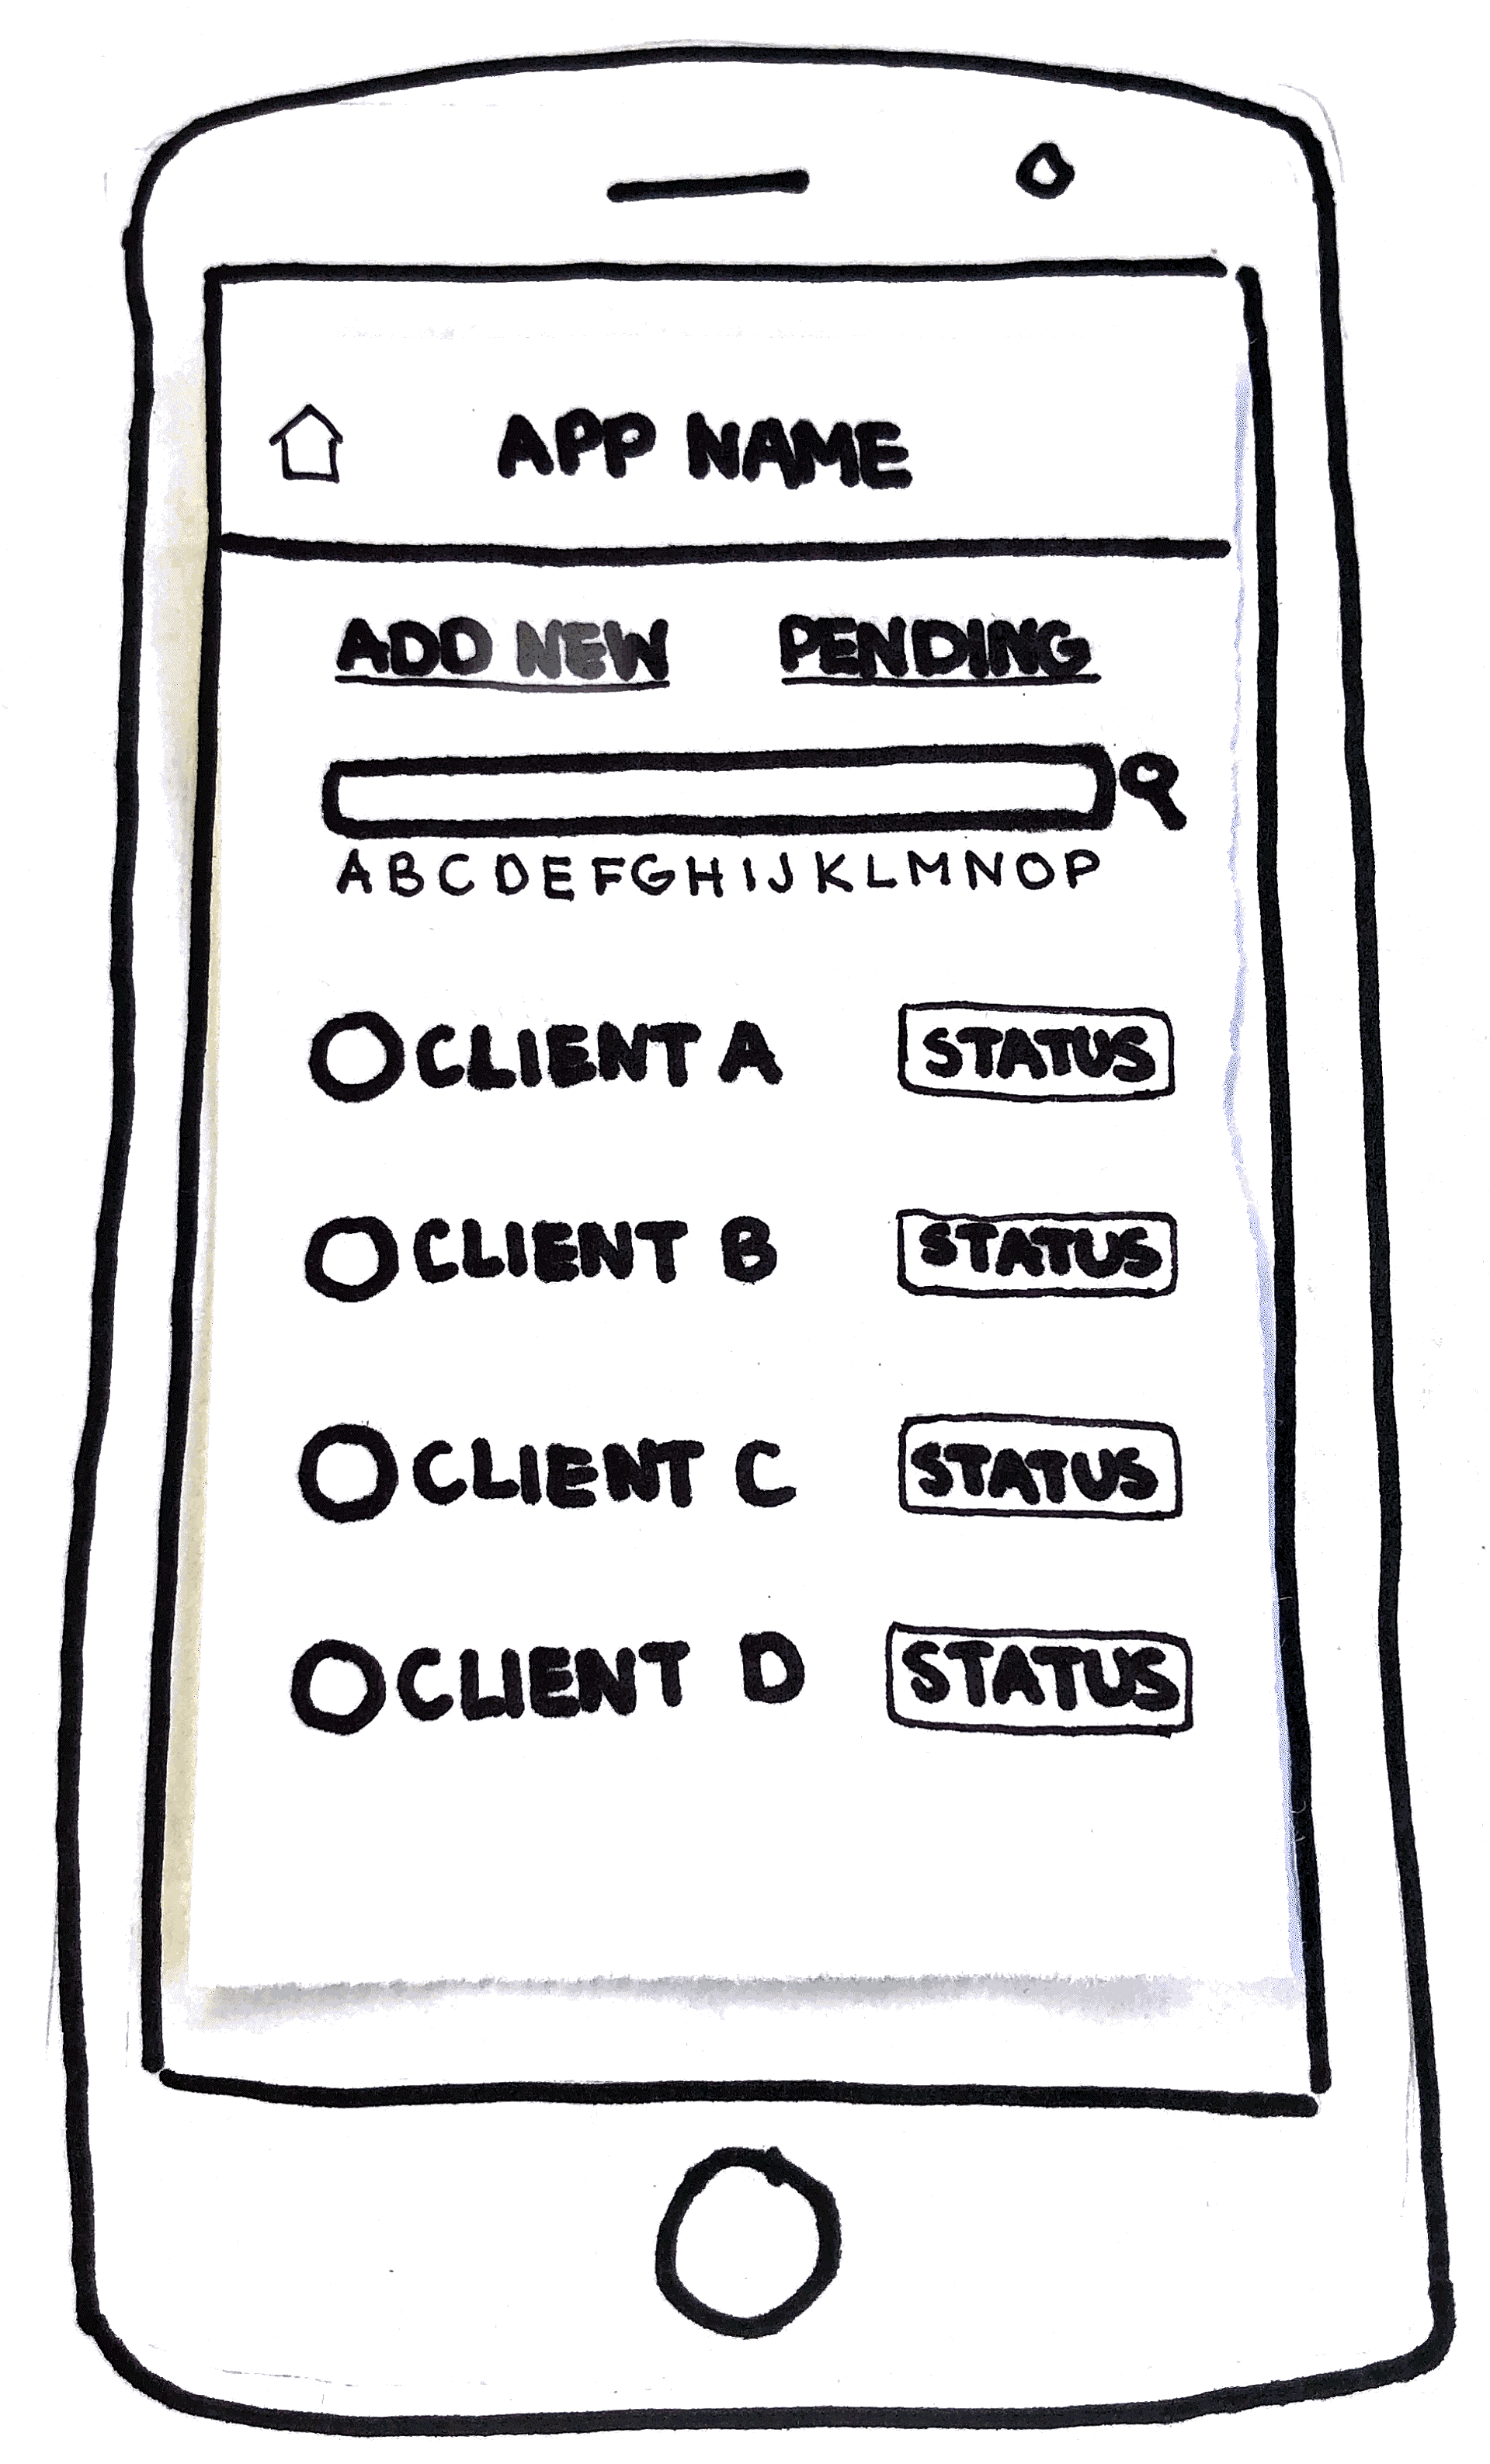 APP NAME
ADD NEW PENDING
ABCDEFGHIJKLMNOP
CLIENT A STATUS
CLIENT B STATUS
CLIENT C STATUS
CLIENT D STATUS